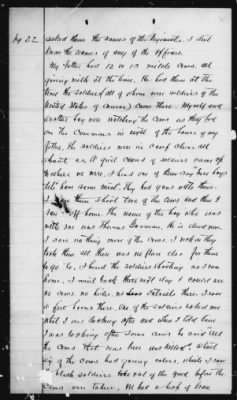 Dep 22
asked them the names of the Regiment. I didn't
know the names of any of the officers.
My father had 12 or 13 milch cows, all
giving milk at the time. He had them at the
time the soldiers (all of whom were soldiers of the
United States of course) came there. Myself and
another boy were watching the cows as they fed
on the commons in sight of the house of my
father. The soldiers were in camp close all
about us. A great crowd of soldiers came up
where we were. I heard one of them say here boys
let's have some meat. They had guns with them.
them shoot two of the cows and then I
ran off home. The name of the boy who was
with me was Thomas Gorman. He is dead now.
I saw no thing more of the cows. I reckon they
took them all there was no place else for them
to go to. I heard the soldiers shooting as I ran
home. I went back there next day & could see
no cows no hides, no entrails there. I saw
a few horns there. One of the soldiers asked me
what I was looking after and when I told him
I was looking after some cows he said all
the cows that was here was killed.
of the cows had young calves, while I saw
soldiers take out of the yard before the
cows were taken. We had a heap of